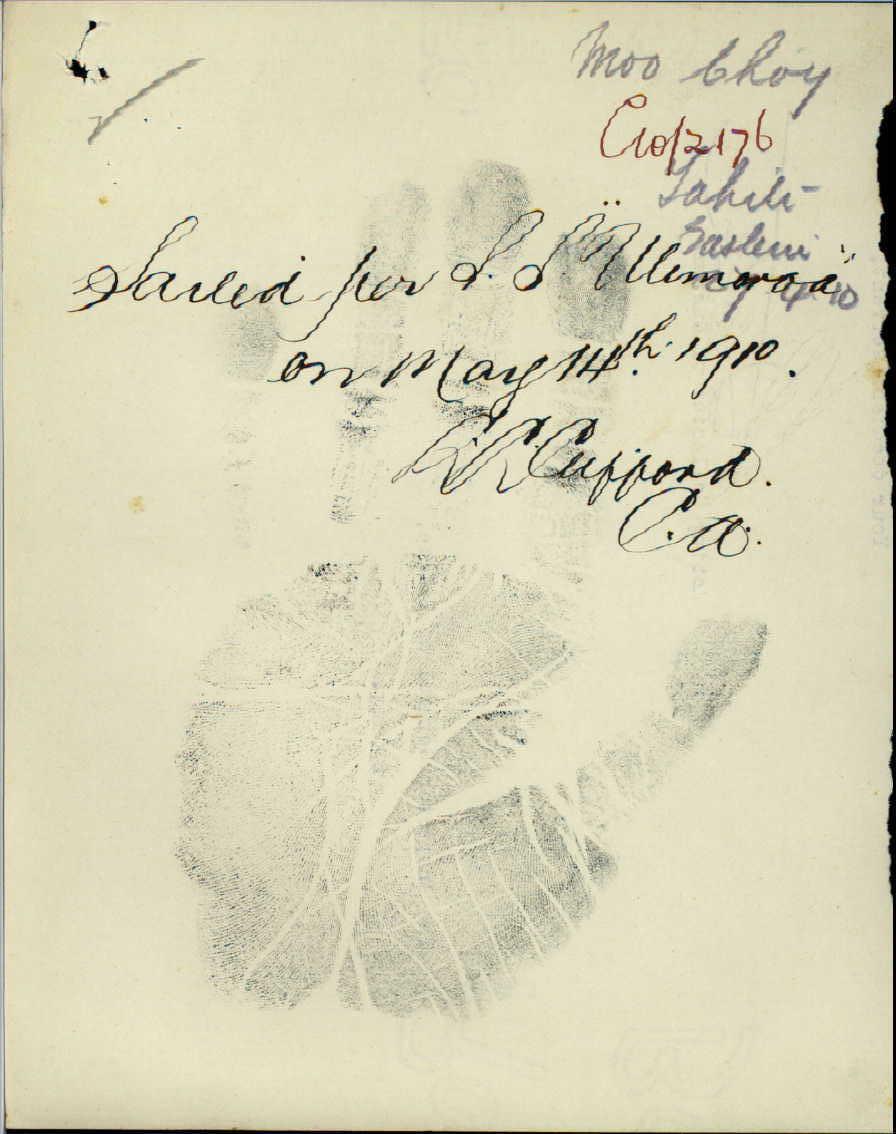 Moo Choy
C10/2176
Tahiti
Eastern
10
Sailed per S. S "Mimiroa"
on May 14th 1910.
Clifford.
C.O.